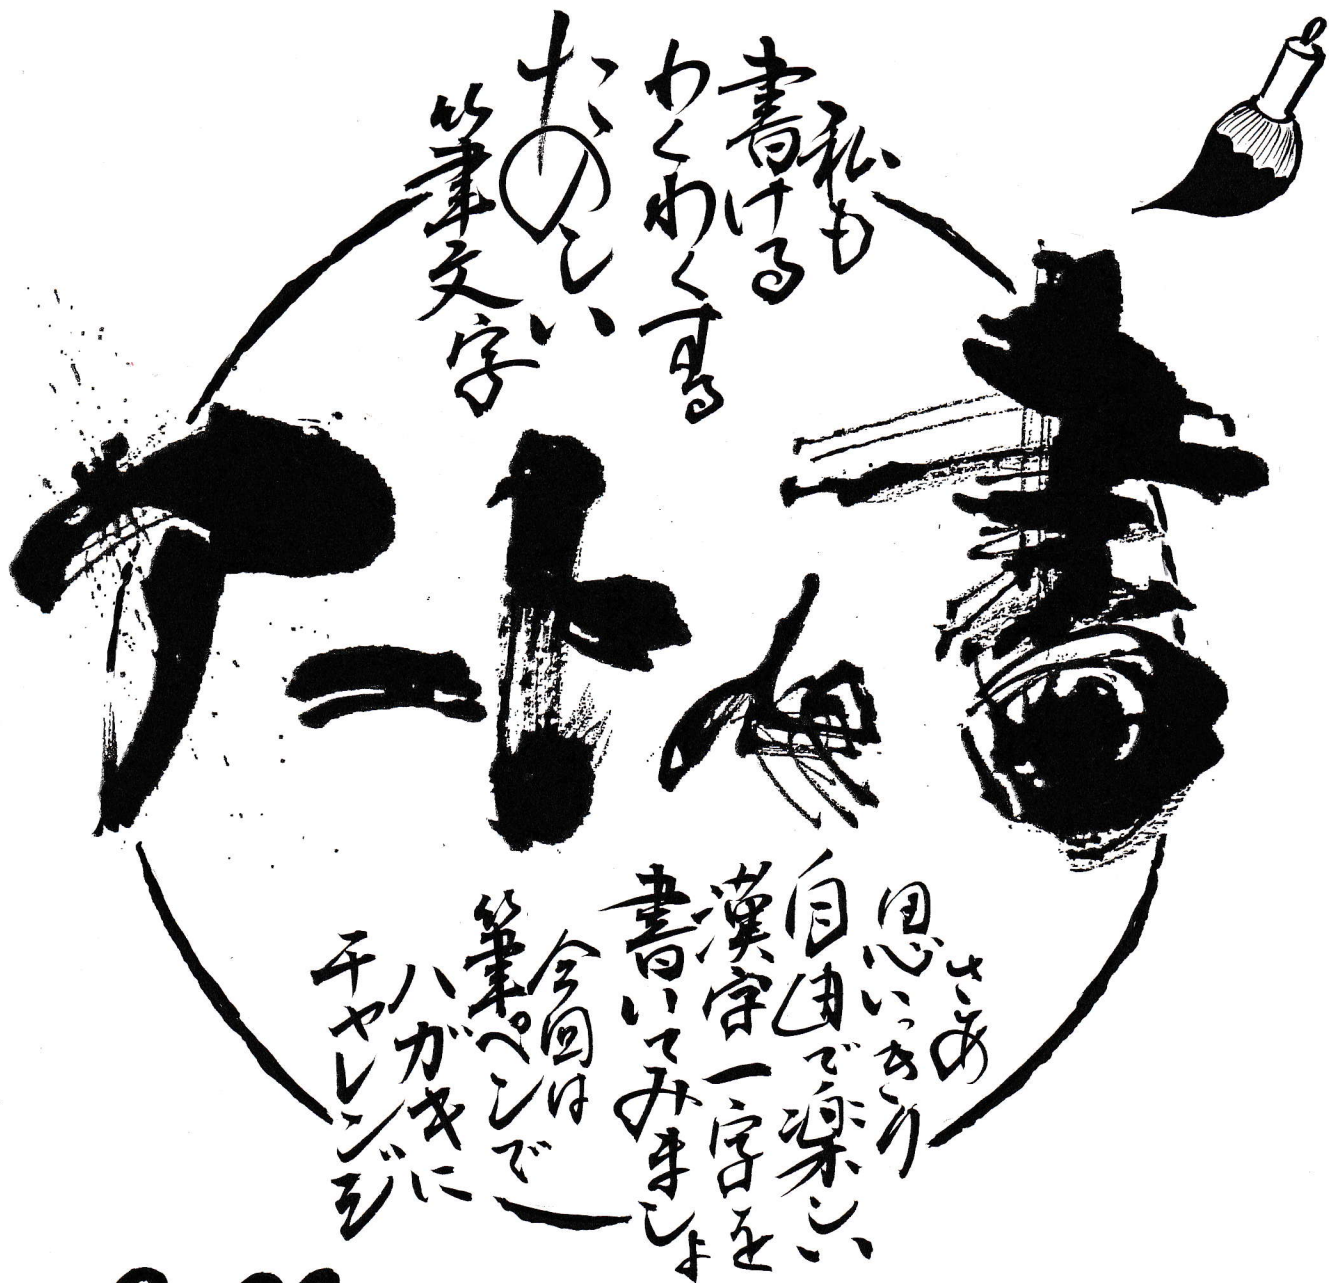 私も
書ける
わくわくする
たのしい
筆文字
アート
書
さあ
思いっきり
自由で楽しい
漢字一字を
書いてみましょ
今回は
筆ペンで
ハガキに
チャレンジ